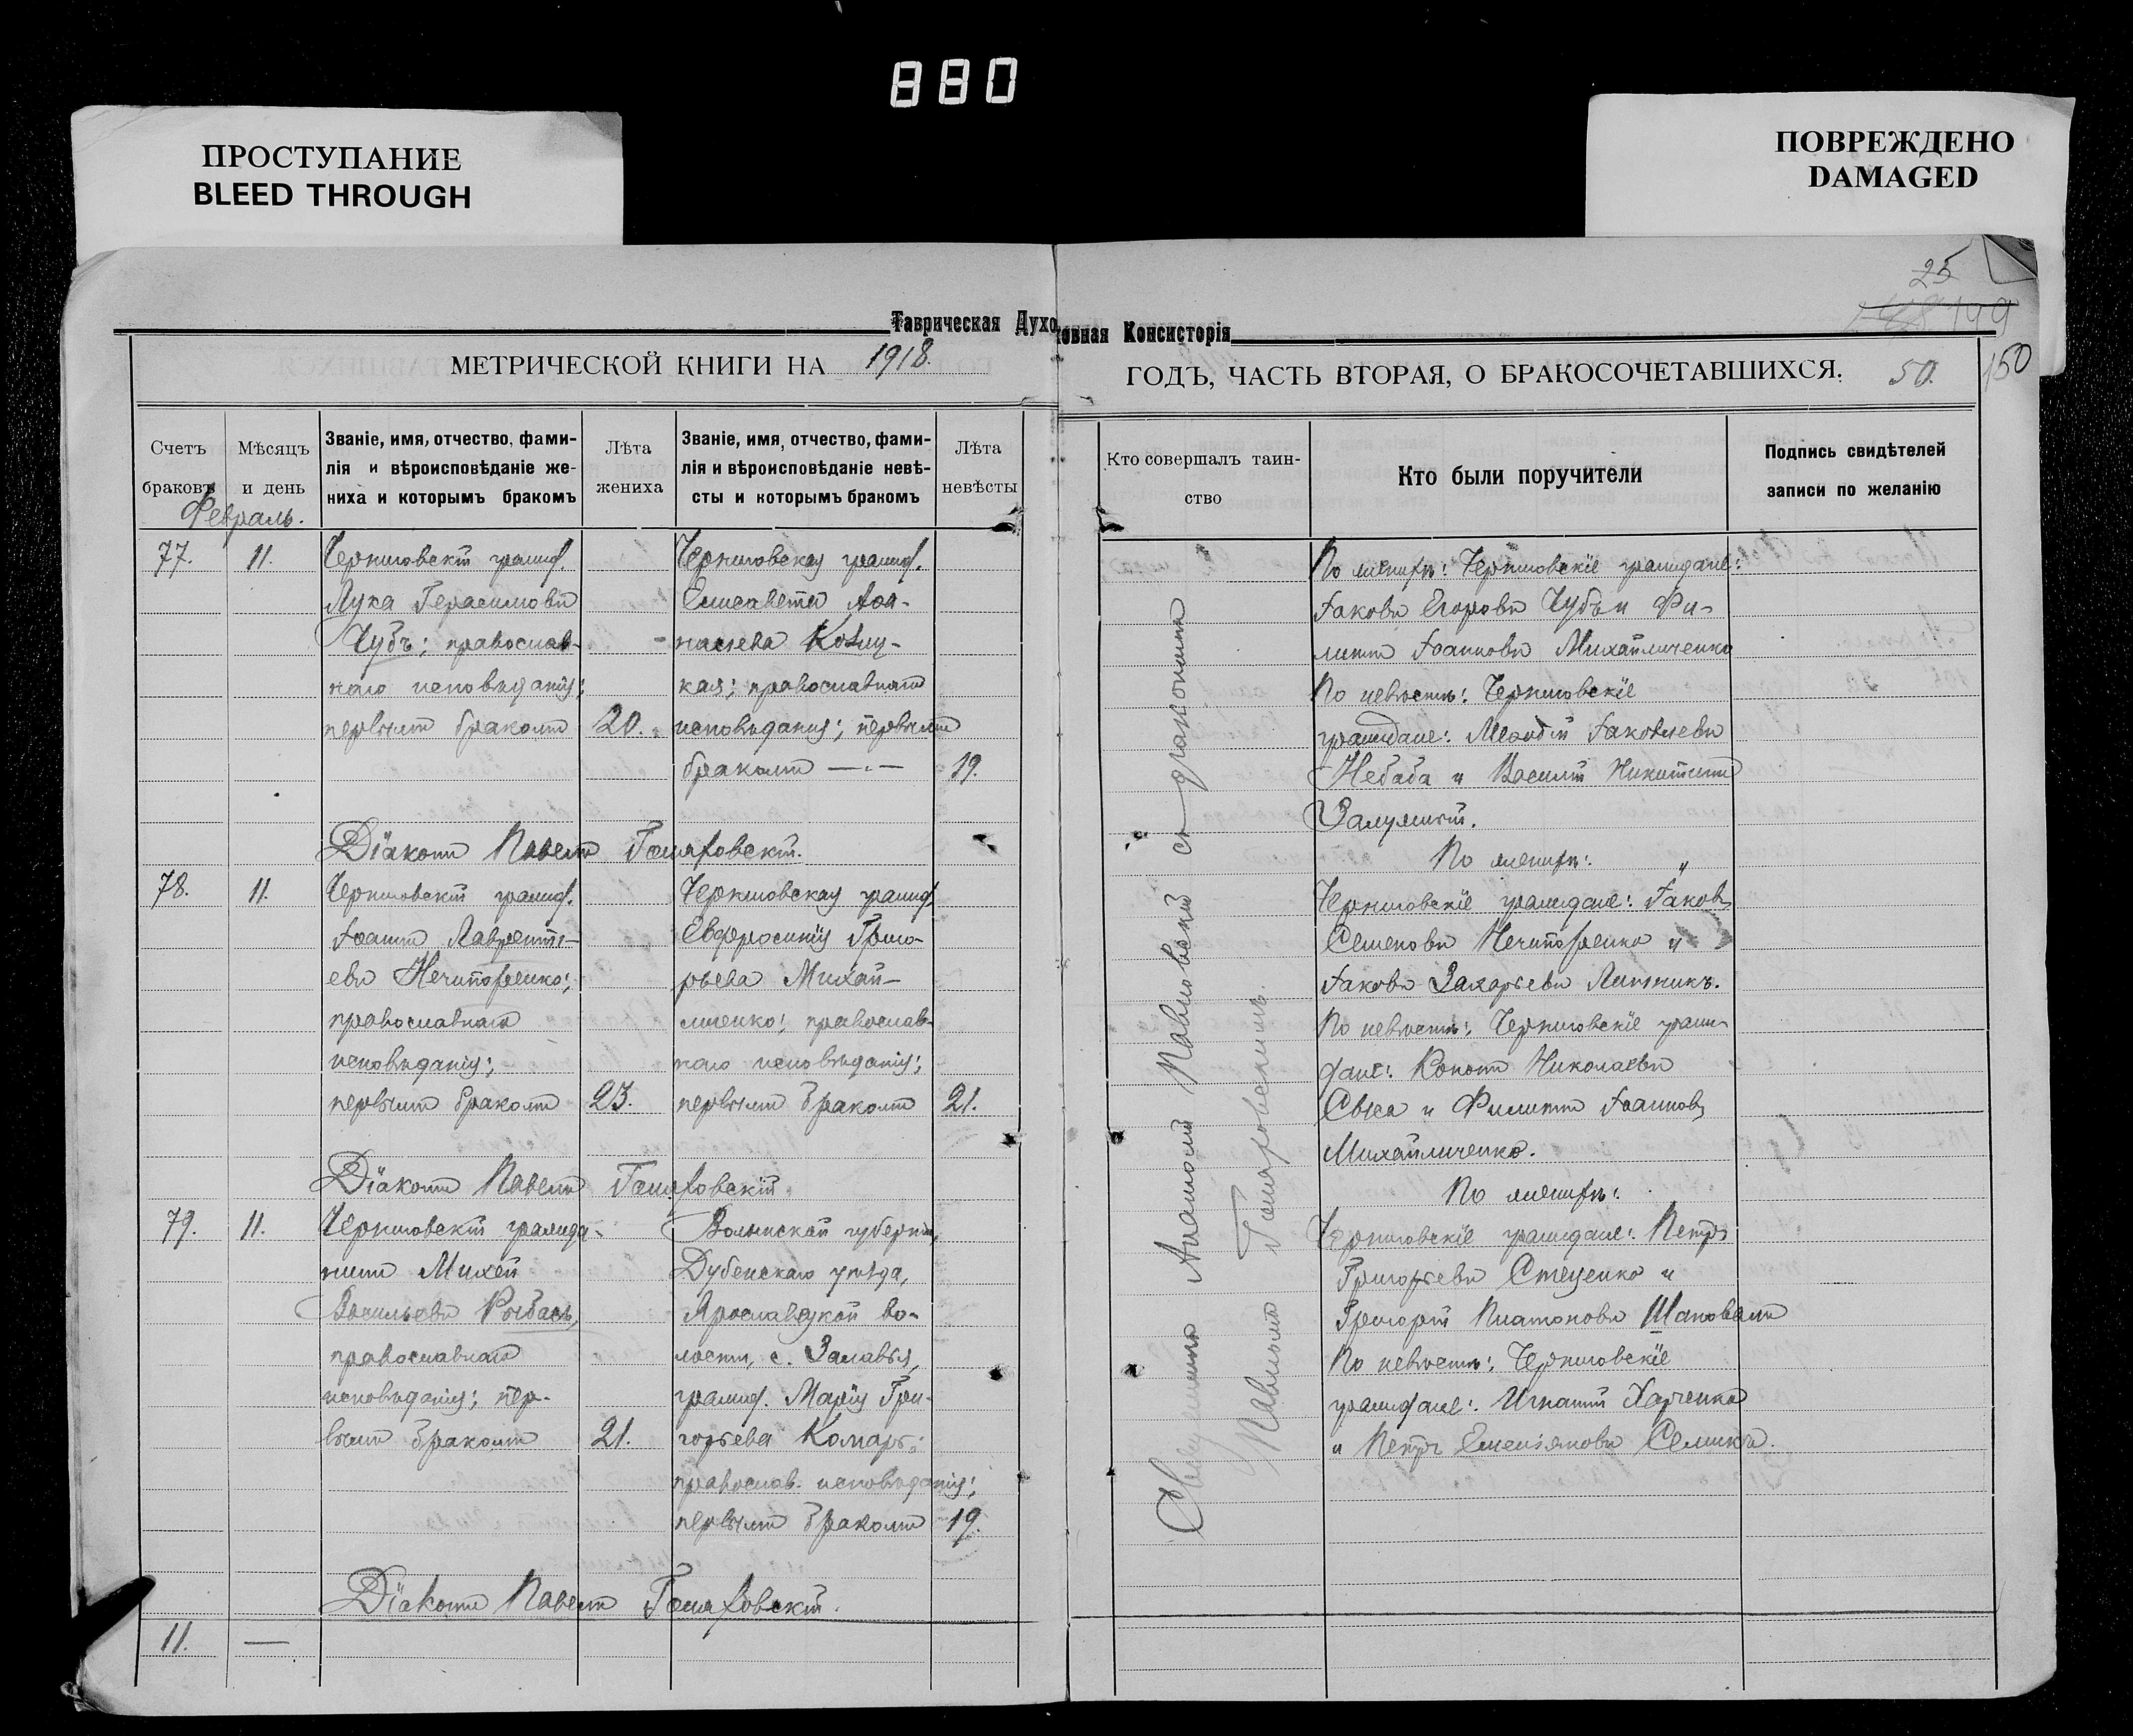 880
ПРОСТУПАНИЕ
BLEED THROUGH
ПОВРЕЖДЕНО
DAMAGED
25
199
Таврическая Духовная Консисторія
МЕТРИЧЕСКОЙ КНИГИ НА 1918.
ГОДЪ, ЧАСТЬ ВТОРАЯ, О БРАКОСОЧЕТАВШИХСЯ. 50. 150
Счетъ браковъ
Мѣсяцъ и день
Званіе, имя, отчество, фами-
лія и вѣроисповѣданіе же-
ниха и которымъ бракомъ
Лѣта жениха
Званіе, имя, отчество, фами-
лія и вѣроисповѣданіе невѣ-
сты и которымъ бракомъ
Лѣта невѣсты
Кто совершалъ таин-
ство
Кто были поручители
Подпись свидѣтелей
записи по желанію
Февраль.
77. 11.
Черниговскій гражд.
Лука Герасимовъ
Чубъ; православ-
наго исповѣданія;
первымъ бракомъ 20.
Черниговская гражд.
Елисавета Аѳа-
насьева
кая; православнаго
исповѣданія; первымъ
бракомъ —"— 19.
По женихѣ: Черниговскіе граждане:
Іаковъ Егоровъ Чубъ и Фи-
липпъ Іоанновъ Михайличенко
По невѣстѣ: Черниговскіе
граждане: Меѳодій Іаковлевъ
Небаба и Василій Никитинъ
Залужный.
Діаконъ Павелъ Гошаровскій.
78. 11.
Черниговскій гражд.
Іоаннъ Лавренть-
евъ Нечипоренко;
православнаго
исповѣданія;
первымъ бракомъ 23.
Черниговская гражд.
Евфросинія Григо-
рьева Михай-
личенко; православ-
наго исповѣданія;
первымъ бракомъ 21.
По женихѣ:
Черниговскіе граждане: Іаковъ
Семеновъ Нечипоренко и
Іаковъ Захарьевъ Литвикъ.
По невѣстѣ: Черниговскіе граж-
дане: Кононъ Николаевъ
и Филиппъ Іоанновъ
Михайличенко.
Діаконъ Павелъ Гошаровскій
79. 11.
Черниговскій гражда-
нинъ Михей
Васильевъ Рыбась,
православнаго
исповѣданія; пер-
вымъ бракомъ 21.
Волынской губерніи,
Дубенскаго уѣзда,
Ярославецкой во-
лости, с. Залавья,
гражд. Марія Гри-
горьева Комаръ;
православ. исповѣданія;
первымъ бракомъ 19.
По женихѣ:
Черниговскіе граждане: Петръ
Григорьевъ Стеценко и
Григорій Платоновъ Шаповалъ
По невѣстѣ: Черниговскіе
граждане: Игнатій Харченко
и Петръ Емельяновъ Семикъ.
Діаконъ Павелъ Гошаровскій.
11. —
Священникъ Анатолій Павловскій съ діакономъ
Павломъ Гошаровскимъ.